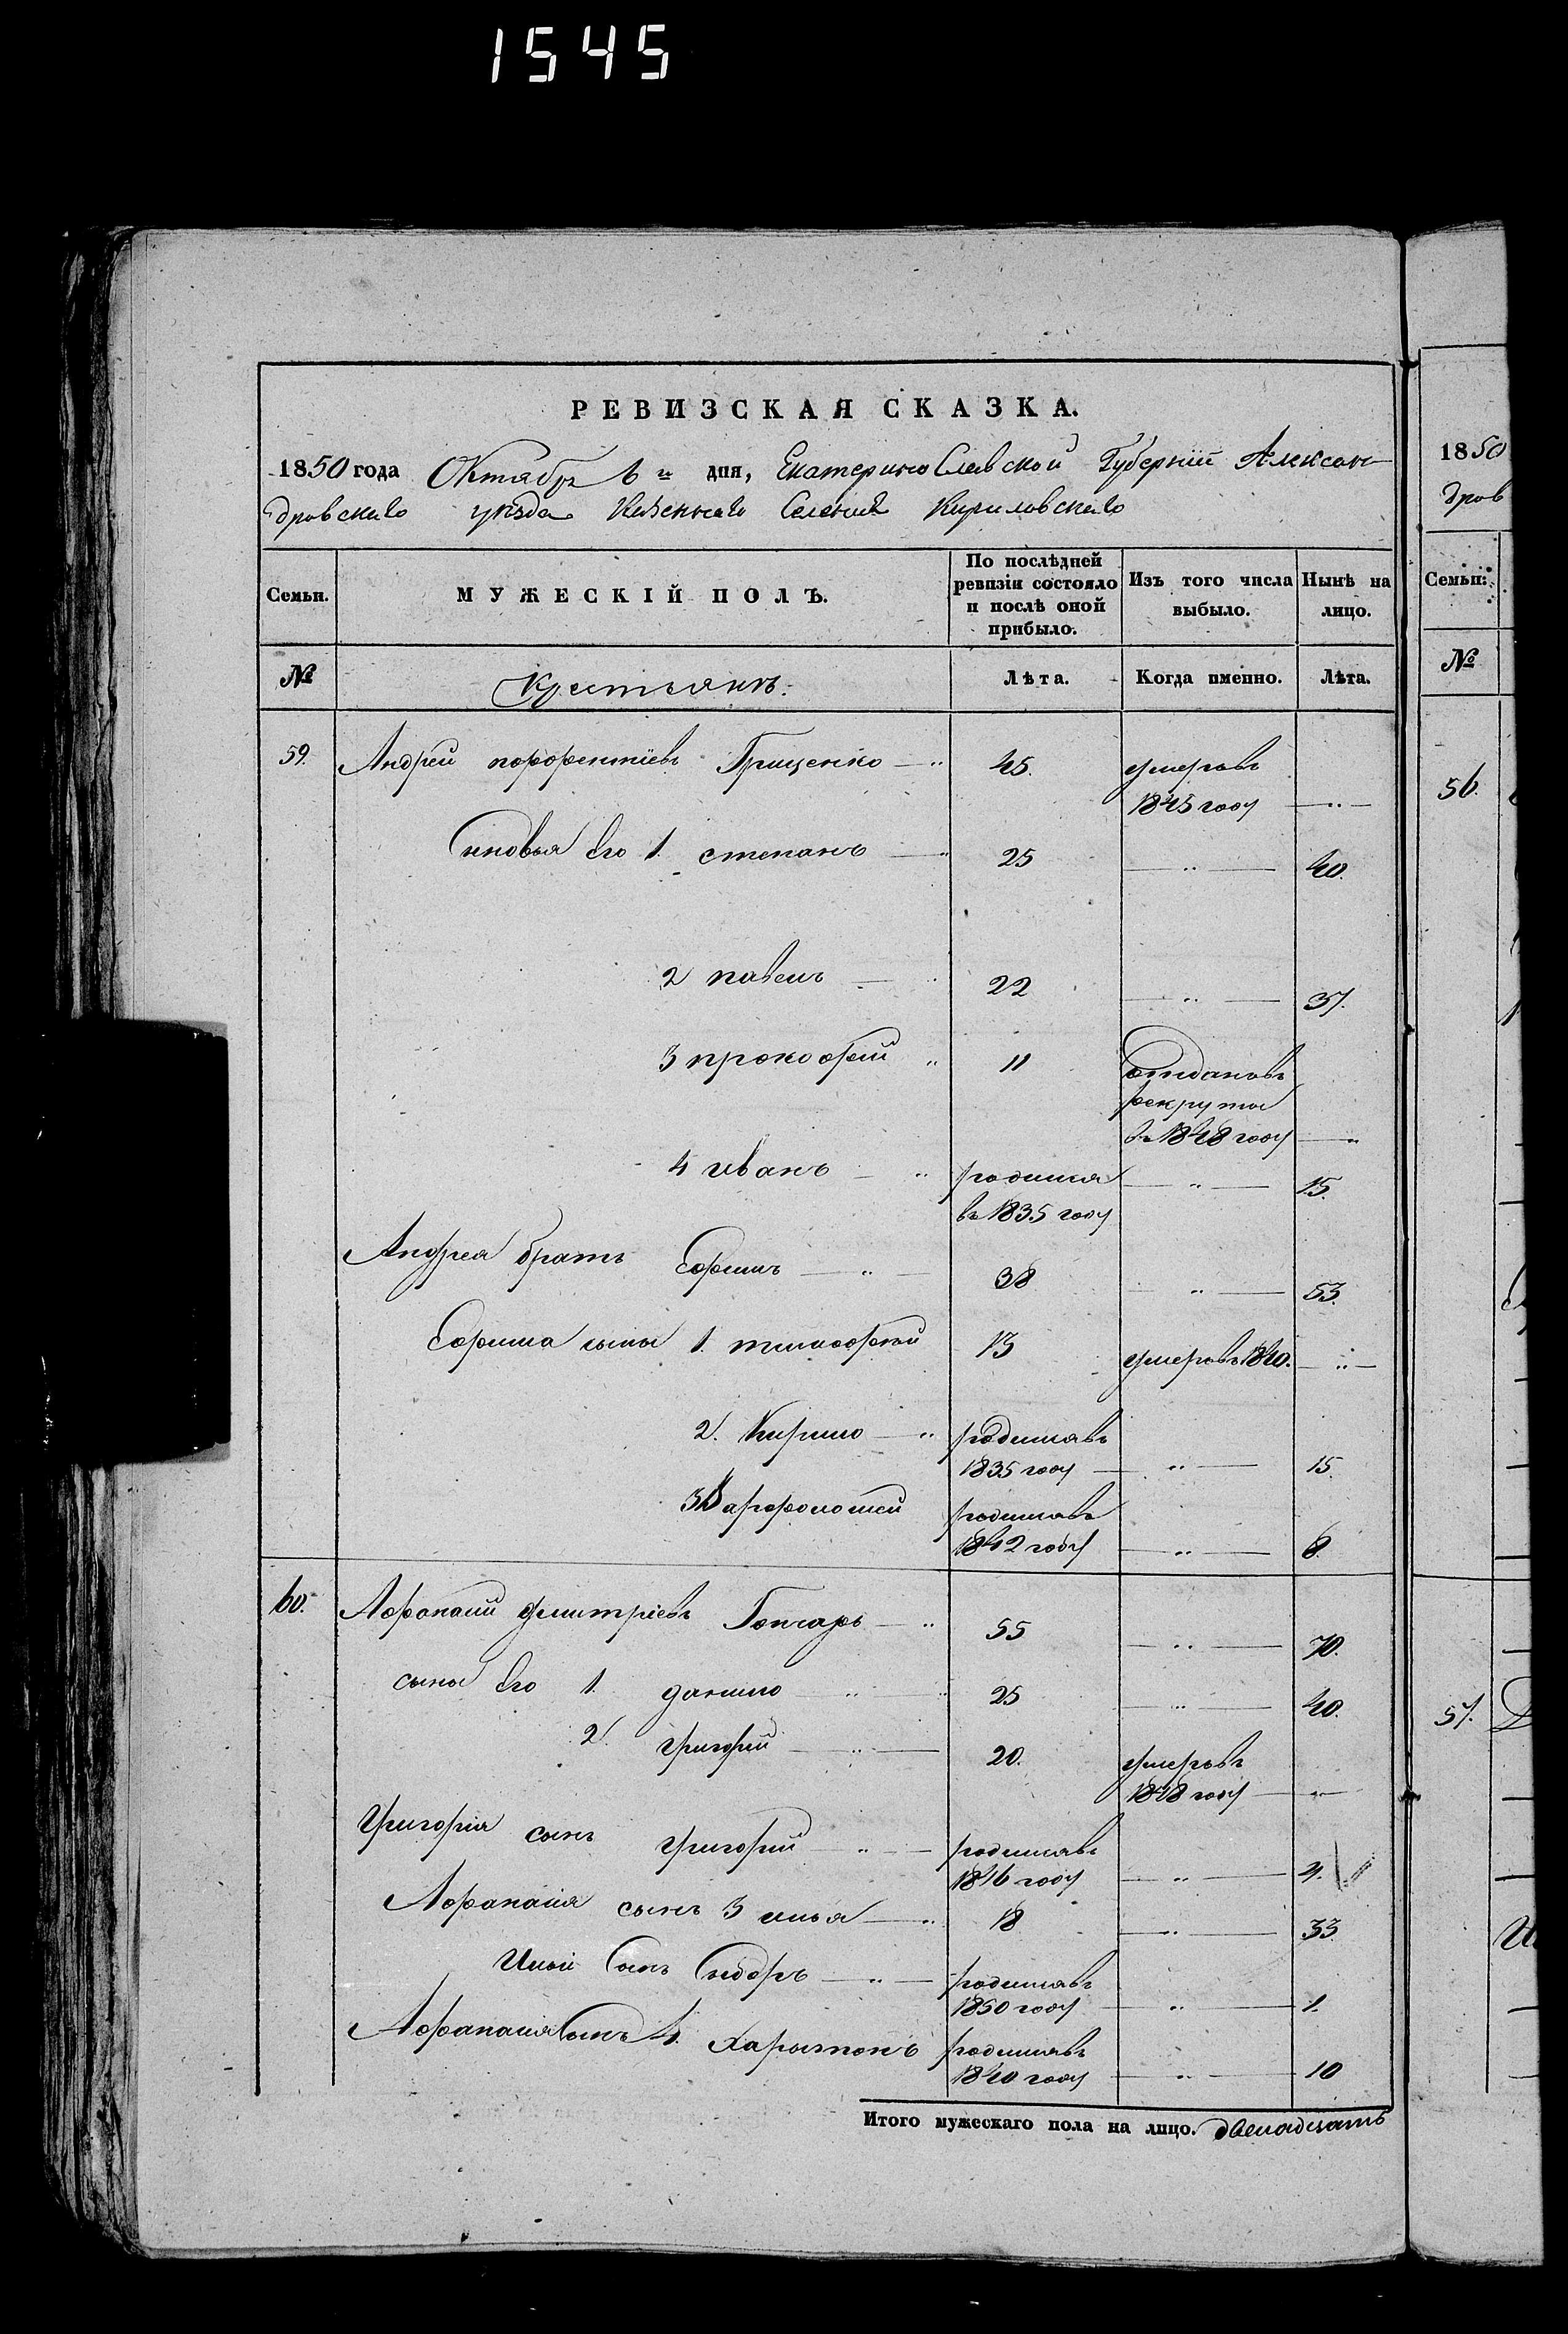 1545
РЕВИЗСКАЯ СКАЗКА.
1850 года Октября 6 го дня, Екатеринославской Губерніи Алексан-
дровскаго уѣзда Казеннаго Селенія Кириловскаго
Семьи. МУЖЕСКІЙ ПОЛЪ. По послѣдней ревизіи состояло и послѣ оной прибыло. Изъ того числа выбыло. Нынѣ на лицо.
№ Крестьянъ. Лѣта. Когда именно. Лѣта.
59. Андрей Грищенко 45. умеръ въ
1845 году
сновья Его 1. степанъ 25 40.
2 павелъ 22 37.
3 прокофѣй 11 отданъ въ
рекруты
въ 1848 году
4 иванъ родился 15.
въ 1835 году
Андрея братъ Ефимъ 38 53.
Ефима сыны 1. тимофѣй 13 умеръ въ 1840.
2. Кирило родился въ
1835 году 15.
3 Варфоломей родился въ
1842 году 8.
60. Афанасій дмитріевъ Гончаръ 55 70.
сыны Его 1. данило 25 40.
2. григорій 20. умеръ въ
1848 году
григорія сынъ григорій родился въ
1846 году 4.
Афанасія сынъ 3 илья 18 33.
Ильи Сынъ Сидоръ родился въ
1850 году 1.
Афанасія Сынъ 4. Харытонъ родился въ
1840 году 10
Итого мужескаго пола на лицо. двенадцать
1850
дров
Семьи.
№
56.
57.